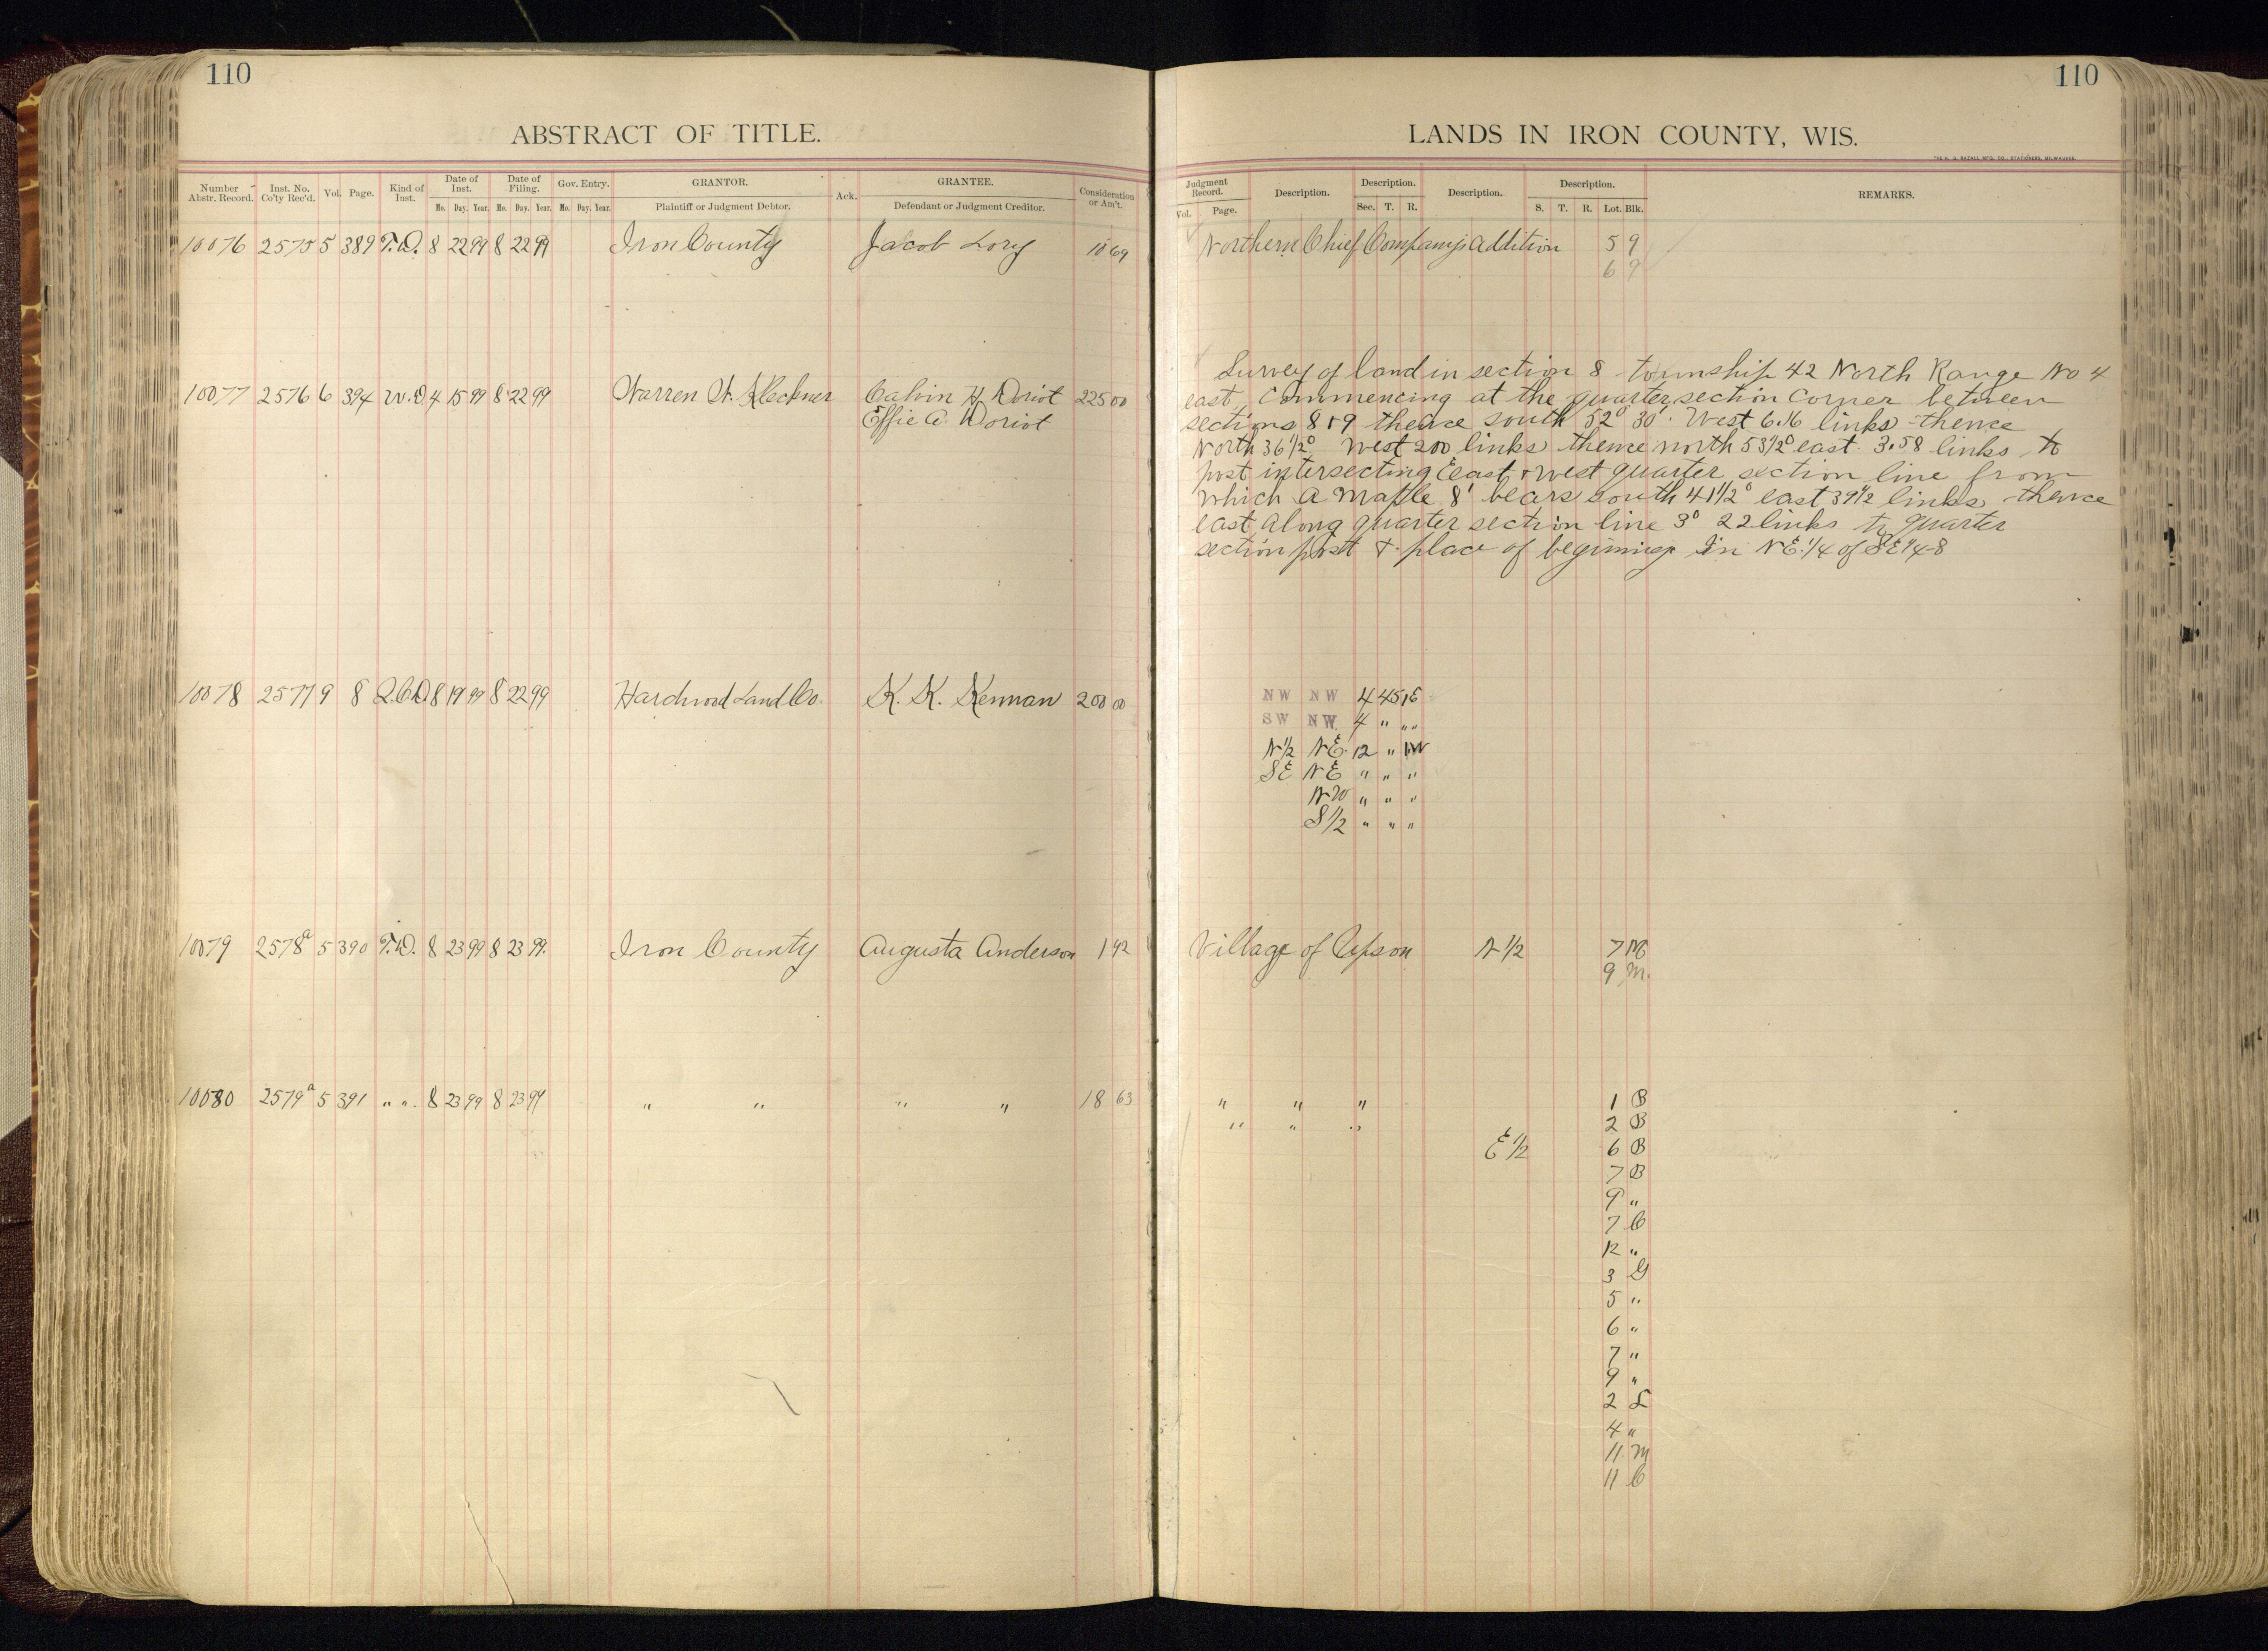 110
ABSTRACT OF TITLE.
Number Abstr. Record. Inst. No. Co'ty Rec'd. Vol. Page. Kind of Inst. Date of Inst. Date of Filing. Gov. Entry. GRANTOR. Ack. GRANTEE. Consideration or Am't.
Mo. Day. Year. Mo. Day. Year. Mo. Day. Year. Plaintiff or Judgment Debtor. Defendant or Judgment Creditor.
10076 2575 5 389 T.D. 8 22 99 8 22 99 Iron County Jacob Lory 10 69
10077 2576 6 394 W.D 4 15 99 8 22 99 Warren W. Kleckner Calvin H. Doriot 225 00
Effie A. Doriot
10078 2577 9 8 Q.C.D. 8 19 99 8 22 99 Hardwood Land Co. K. K. Kennan 200 00
10079 2578a 5 390 T.D. 8 23 99 8 23 99. Iron County Augusta Anderson 1 92
10080 2579a 5 391 " ". 8 23 99 8 23 99 " " " " 18 63
110
LANDS IN IRON COUNTY, WIS.
Judgment Record. Description. Description. Description. Description. REMARKS.
Vol. Page. Sec. T. R. S. T. R. Lot. Blk.
Northern Chief Company's Addition 5 9
6 9
Survey of land in section 8 township 42 North Range No 4
east Commencing at the quarter section corner between
sections 8 & 9 thence south 52° 30'. West 6.16 links thence
North 36 1/2° West 200 links thence north 53 1/2° east 3.58 links to
post intersecting East & west quarter section line from
which a maple 8' bears south 41 1/2° east 39 1/2 links thence
east along quarter section line 3° 22 links to quarter
section post & place of beginning in NE.1/4 of SE 1/4-8
NW NW 4 45 1E
SW NW 4 " " "
N1/2 NE. 12 " 1W
SE NE " " "
NW " " "
S1/2 " " "
Village of Upson N 1/2 7 M
9 M.
" " " 1 B
" " " 2 B
E 1/2 6 B
7 B
9 "
7 C
12 "
3 G
5 "
6 "
7 "
9 "
2 L
4 "
11 M
11 C